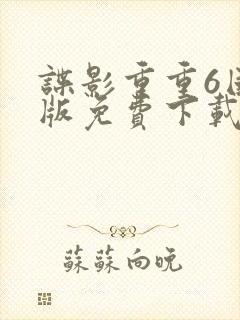 諜影重重6國
版免費下載
蘇蘇向晚